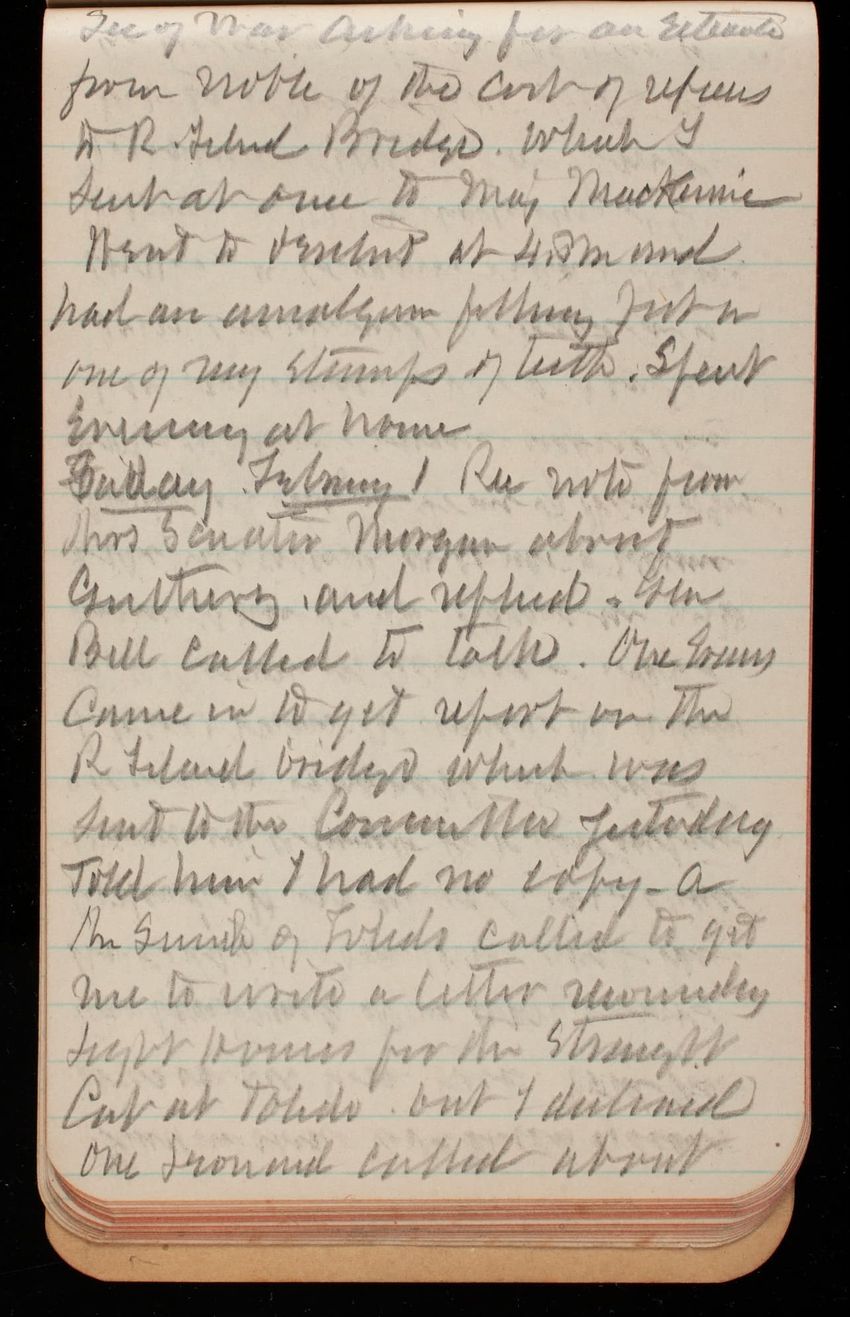 Sec of War asking for an Estimate
from Noble of the cost of repairs
to R Island Bridge. Which I
sent at once to Maj MacKenzie
Went to dentist at 4. P m and
had an amalgam filling put in
one of my stumps of teeth. Spent
Evening at home
Friday February 1 Rec note from
Mrs Senator Morgan about
and replied. Gen
Bell called to talk. One Evans
Came in to get report on the
R Island bridge which was
sent to the Committee yesterday
Told him I had no copy - A
Mr Smith of Toledo called to get
me to write a letter recommending
Light houses for the Straight
Cut at Toledo but I declined
One called about